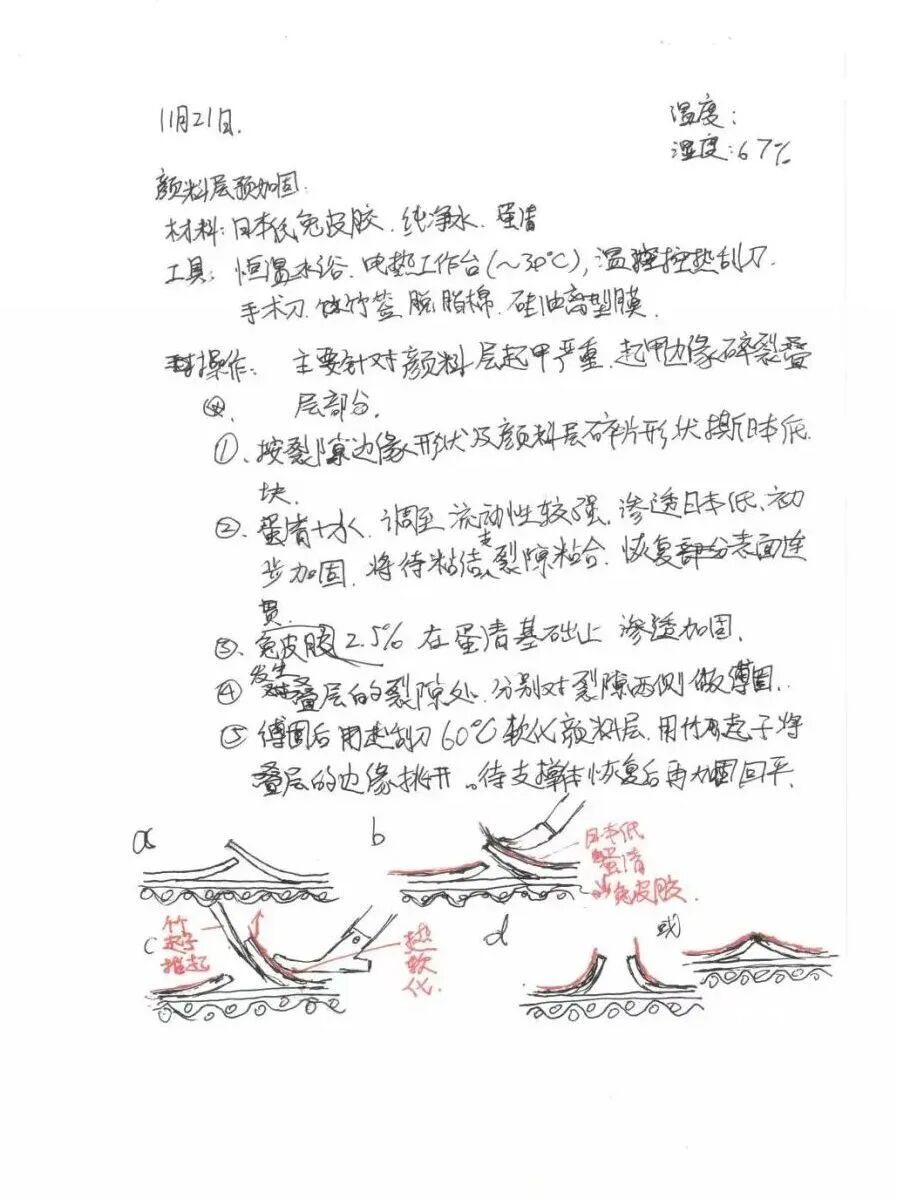 11月21日.
温度:
湿度:67%
颜料层预加固:
材料:日本纸兔皮胶.纯净水.蛋清
工具:恒温水浴.电热工作台(~30℃),温控热刮刀.
手术刀.竹签 脱脂棉.硅油离型膜.
操作: 主要针对颜料层起甲严重.起甲边缘碎裂叠
层部分.
①.按裂隙边缘形状及颜料层碎片形状撕日本纸
块.
②.蛋清+水.调至流动性较强.渗透日本纸.初
步加固.将待粘结之裂隙粘合.恢复部分表面连
贯.
③.兔皮胶2.5% 在蛋清基础上 渗透加固.
④发生叠层的裂隙处.分别对裂隙两侧做缚固.
⑤缚固后用热刮刀60℃软化颜料层.用竹起子将
叠层的边缘挑开。待支撑体恢复后再加固回平.
a
b
日本纸
蛋清
兔皮胶.
c
竹
起子
推起
热
软
化.
d
或